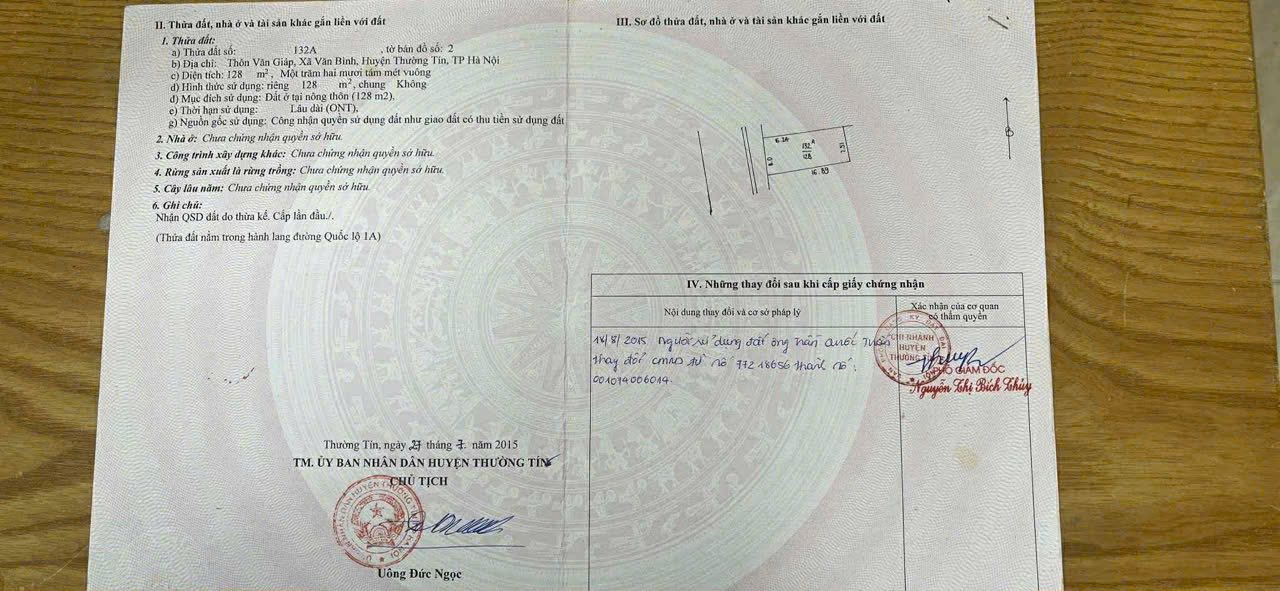 II. Thửa đất, nhà ở và tài sản khác gắn liền với đất
1. Thửa đất:
a) Thửa đất số: 132A , tờ bản đồ số: 2
b) Địa chỉ: Thôn Văn Giáp, Xã Văn Bình, Huyện Thường Tín, TP Hà Nội
c) Diện tích: 128 m², Một trăm hai mươi tám mét vuông
d) Hình thức sử dụng: riêng 128 m², chung Không
đ) Mục đích sử dụng: Đất ở tại nông thôn (128 m2),
e) Thời hạn sử dụng: Lâu dài (ONT),
g) Nguồn gốc sử dụng: Công nhận quyền sử dụng đất như giao đất có thu tiền sử dụng đất
2. Nhà ở: Chưa chứng nhận quyền sở hữu.
3. Công trình xây dựng khác: Chưa chứng nhận quyền sở hữu.
4. Rừng sản xuất là rừng trồng: Chưa chứng nhận quyền sở hữu.
5. Cây lâu năm: Chưa chứng nhận quyền sở hữu.
6. Ghi chú:
Nhận QSD đất do thừa kế. Cấp lần đầu./.
(Thửa đất nằm trong hành lang đường Quốc lộ 1A)
Thường Tín, ngày 27 tháng 7 năm 2015
TM. ỦY BAN NHÂN DÂN HUYỆN THƯỜNG TÍN
CHỦ TỊCH
Uông Đức Ngọc
III. Sơ đồ thửa đất, nhà ở và tài sản khác gắn liền với đất
132A
128
6.0
7.51
16.89
IV. Những thay đổi sau khi cấp giấy chứng nhận
Nội dung thay đổi và cơ sở pháp lý
Xác nhận của cơ quan
có thẩm quyền
18/8/2015 Người sử dụng đất ông Trần Quốc Tuấn
thay đổi CMND từ số 77218656 thành số:
001074006014.
CHI NHÁNH
HUYỆN
THƯỜNG TÍN
PHÓ GIÁM ĐỐC
Nguyễn Thị Bích Thủy